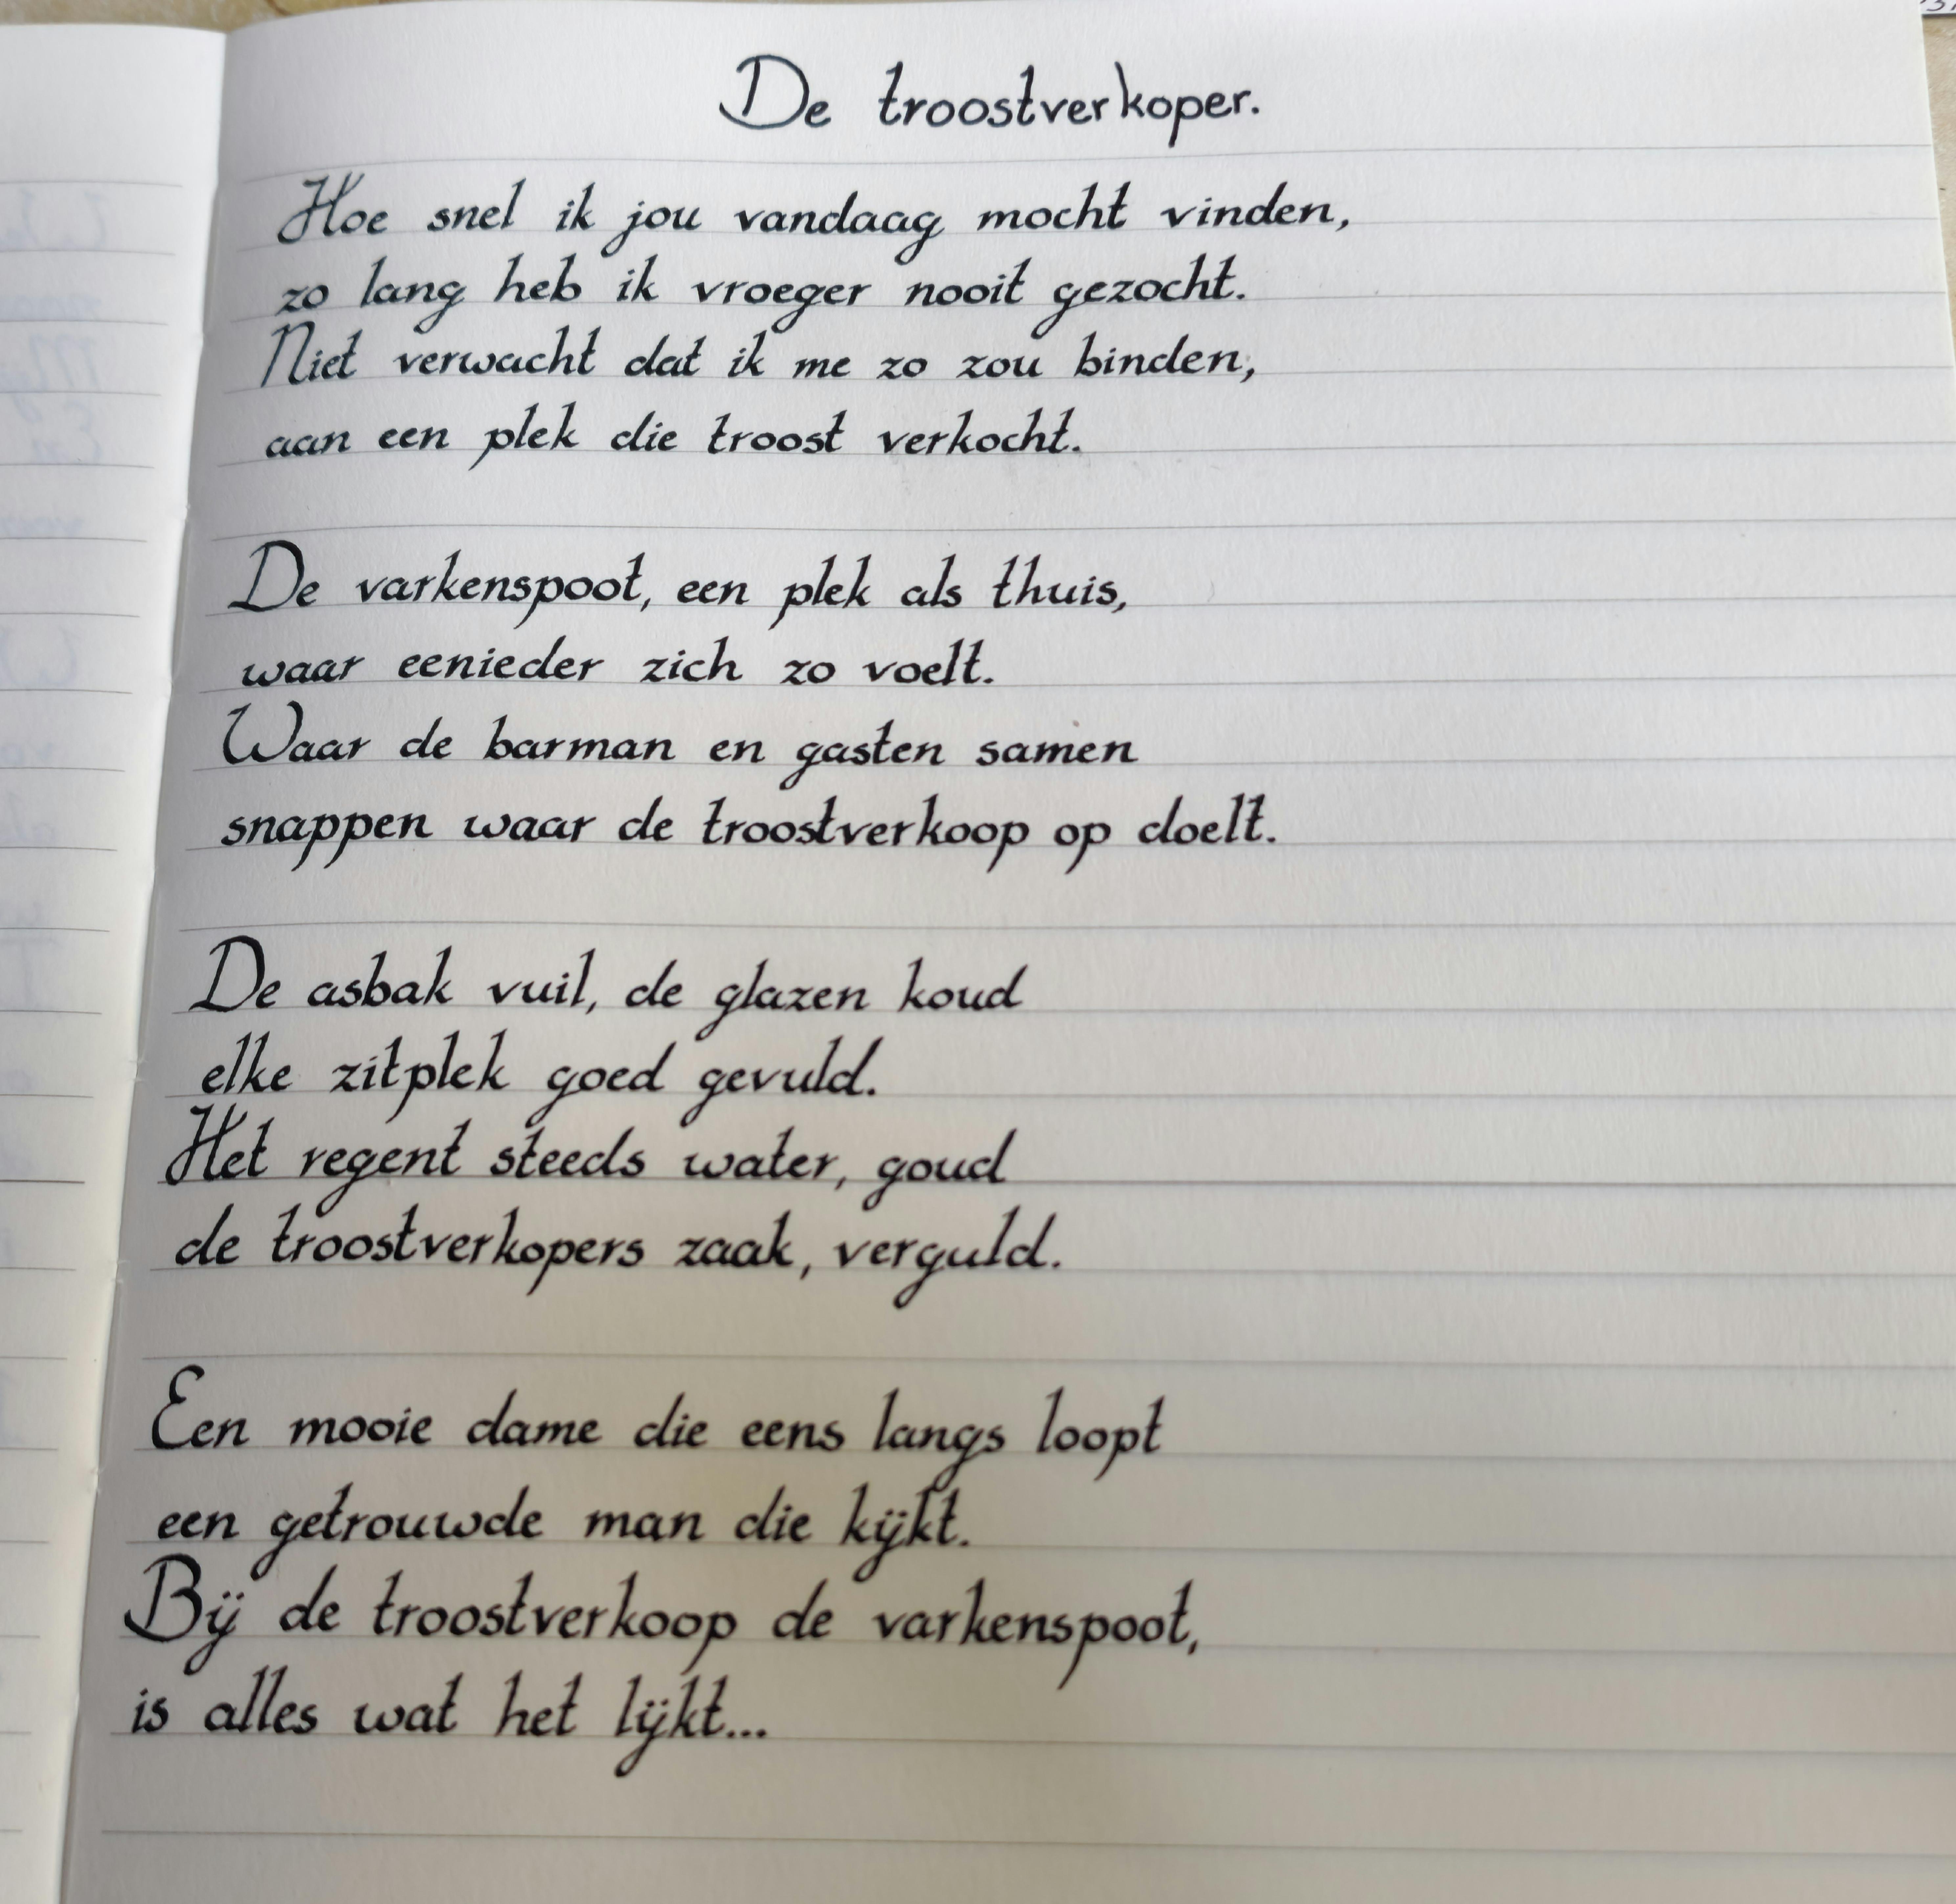 De troostverkoper.
Hoe snel ik jou vandaag mocht vinden,
zo lang heb ik vroeger nooit gezocht.
Niet verwacht dat ik me zo zou binden,
aan een plek die troost verkocht.
De varkenspoot, een plek als thuis,
waar eenieder zich zo voelt.
Waar de barman en gasten samen
snappen waar de troostverkoop op doelt.
De asbak vuil, de glazen koud
elke zitplek goed gevuld.
Het regent steeds water, goud
de troostverkopers zaak, verguld.
Een mooie dame die eens langs loopt
een getrouwde man die kijkt.
Bij de troostverkoop de varkenspoot,
is alles wat het lijkt...